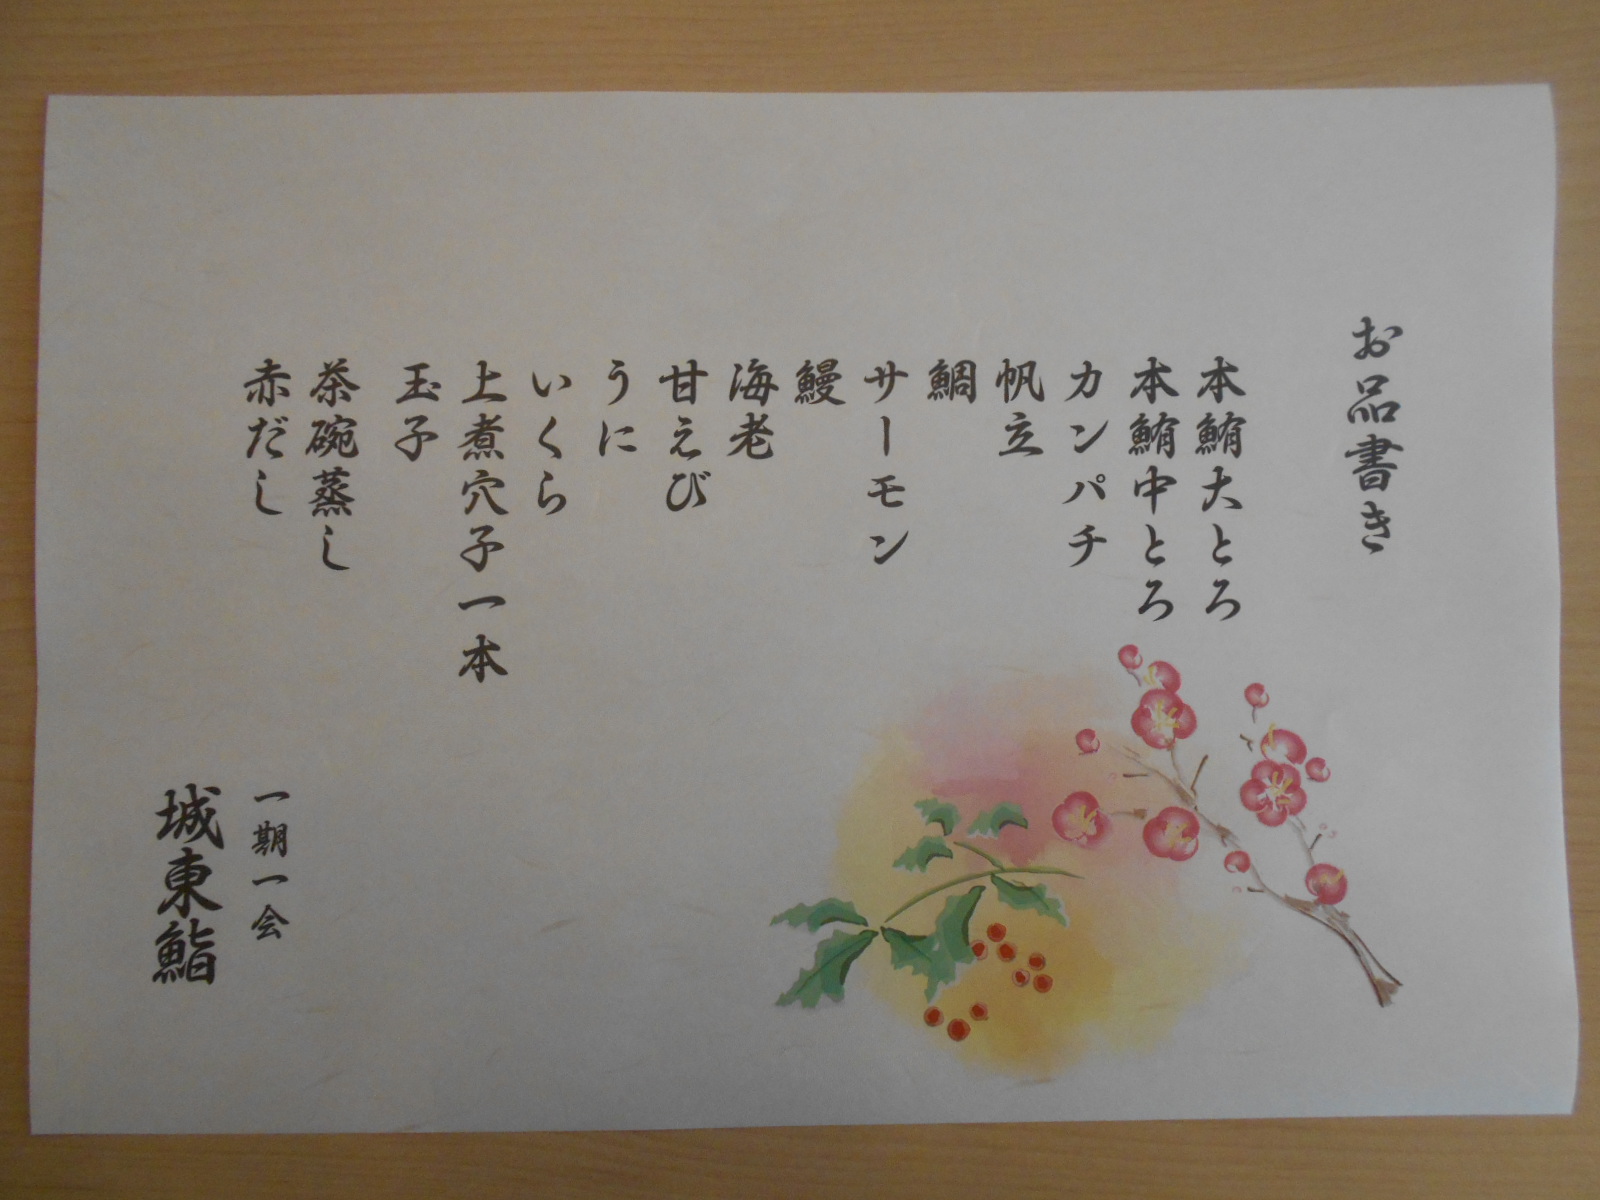 お品書き
本鮪大とろ
本鮪中とろ
カンパチ
帆立
鯛
サーモン
鰻
海老
甘えび
うに
いくら
上煮穴子一本
玉子
茶碗蒸し
赤だし
一期一会
城東鮨